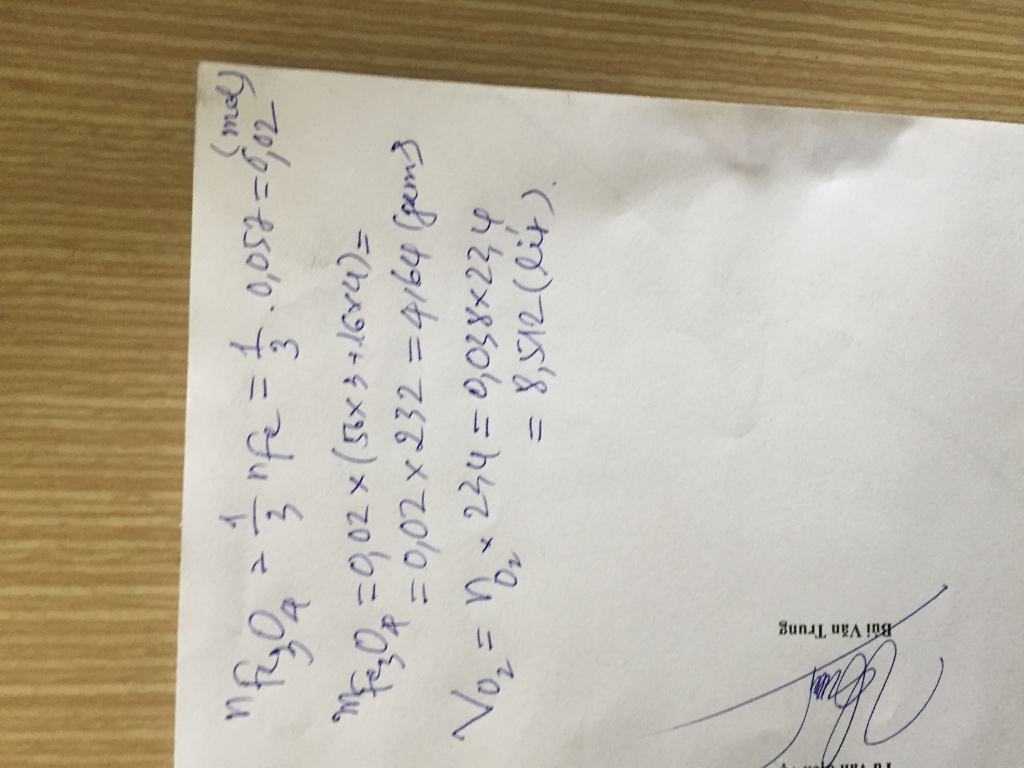 nFe₃O₄ = 1/3 nFe = 1/3 . 0,057 = 0,02 (mol)
mFe₃O₄ = 0,02 x (56x3 + 16x4) =
= 0,02 x 232 = 4,64 (gam)
VO₂ = nO₂ x 22,4 = 0,038 x 22,4
= 8,512 (lít).
Bùi Văn Trung